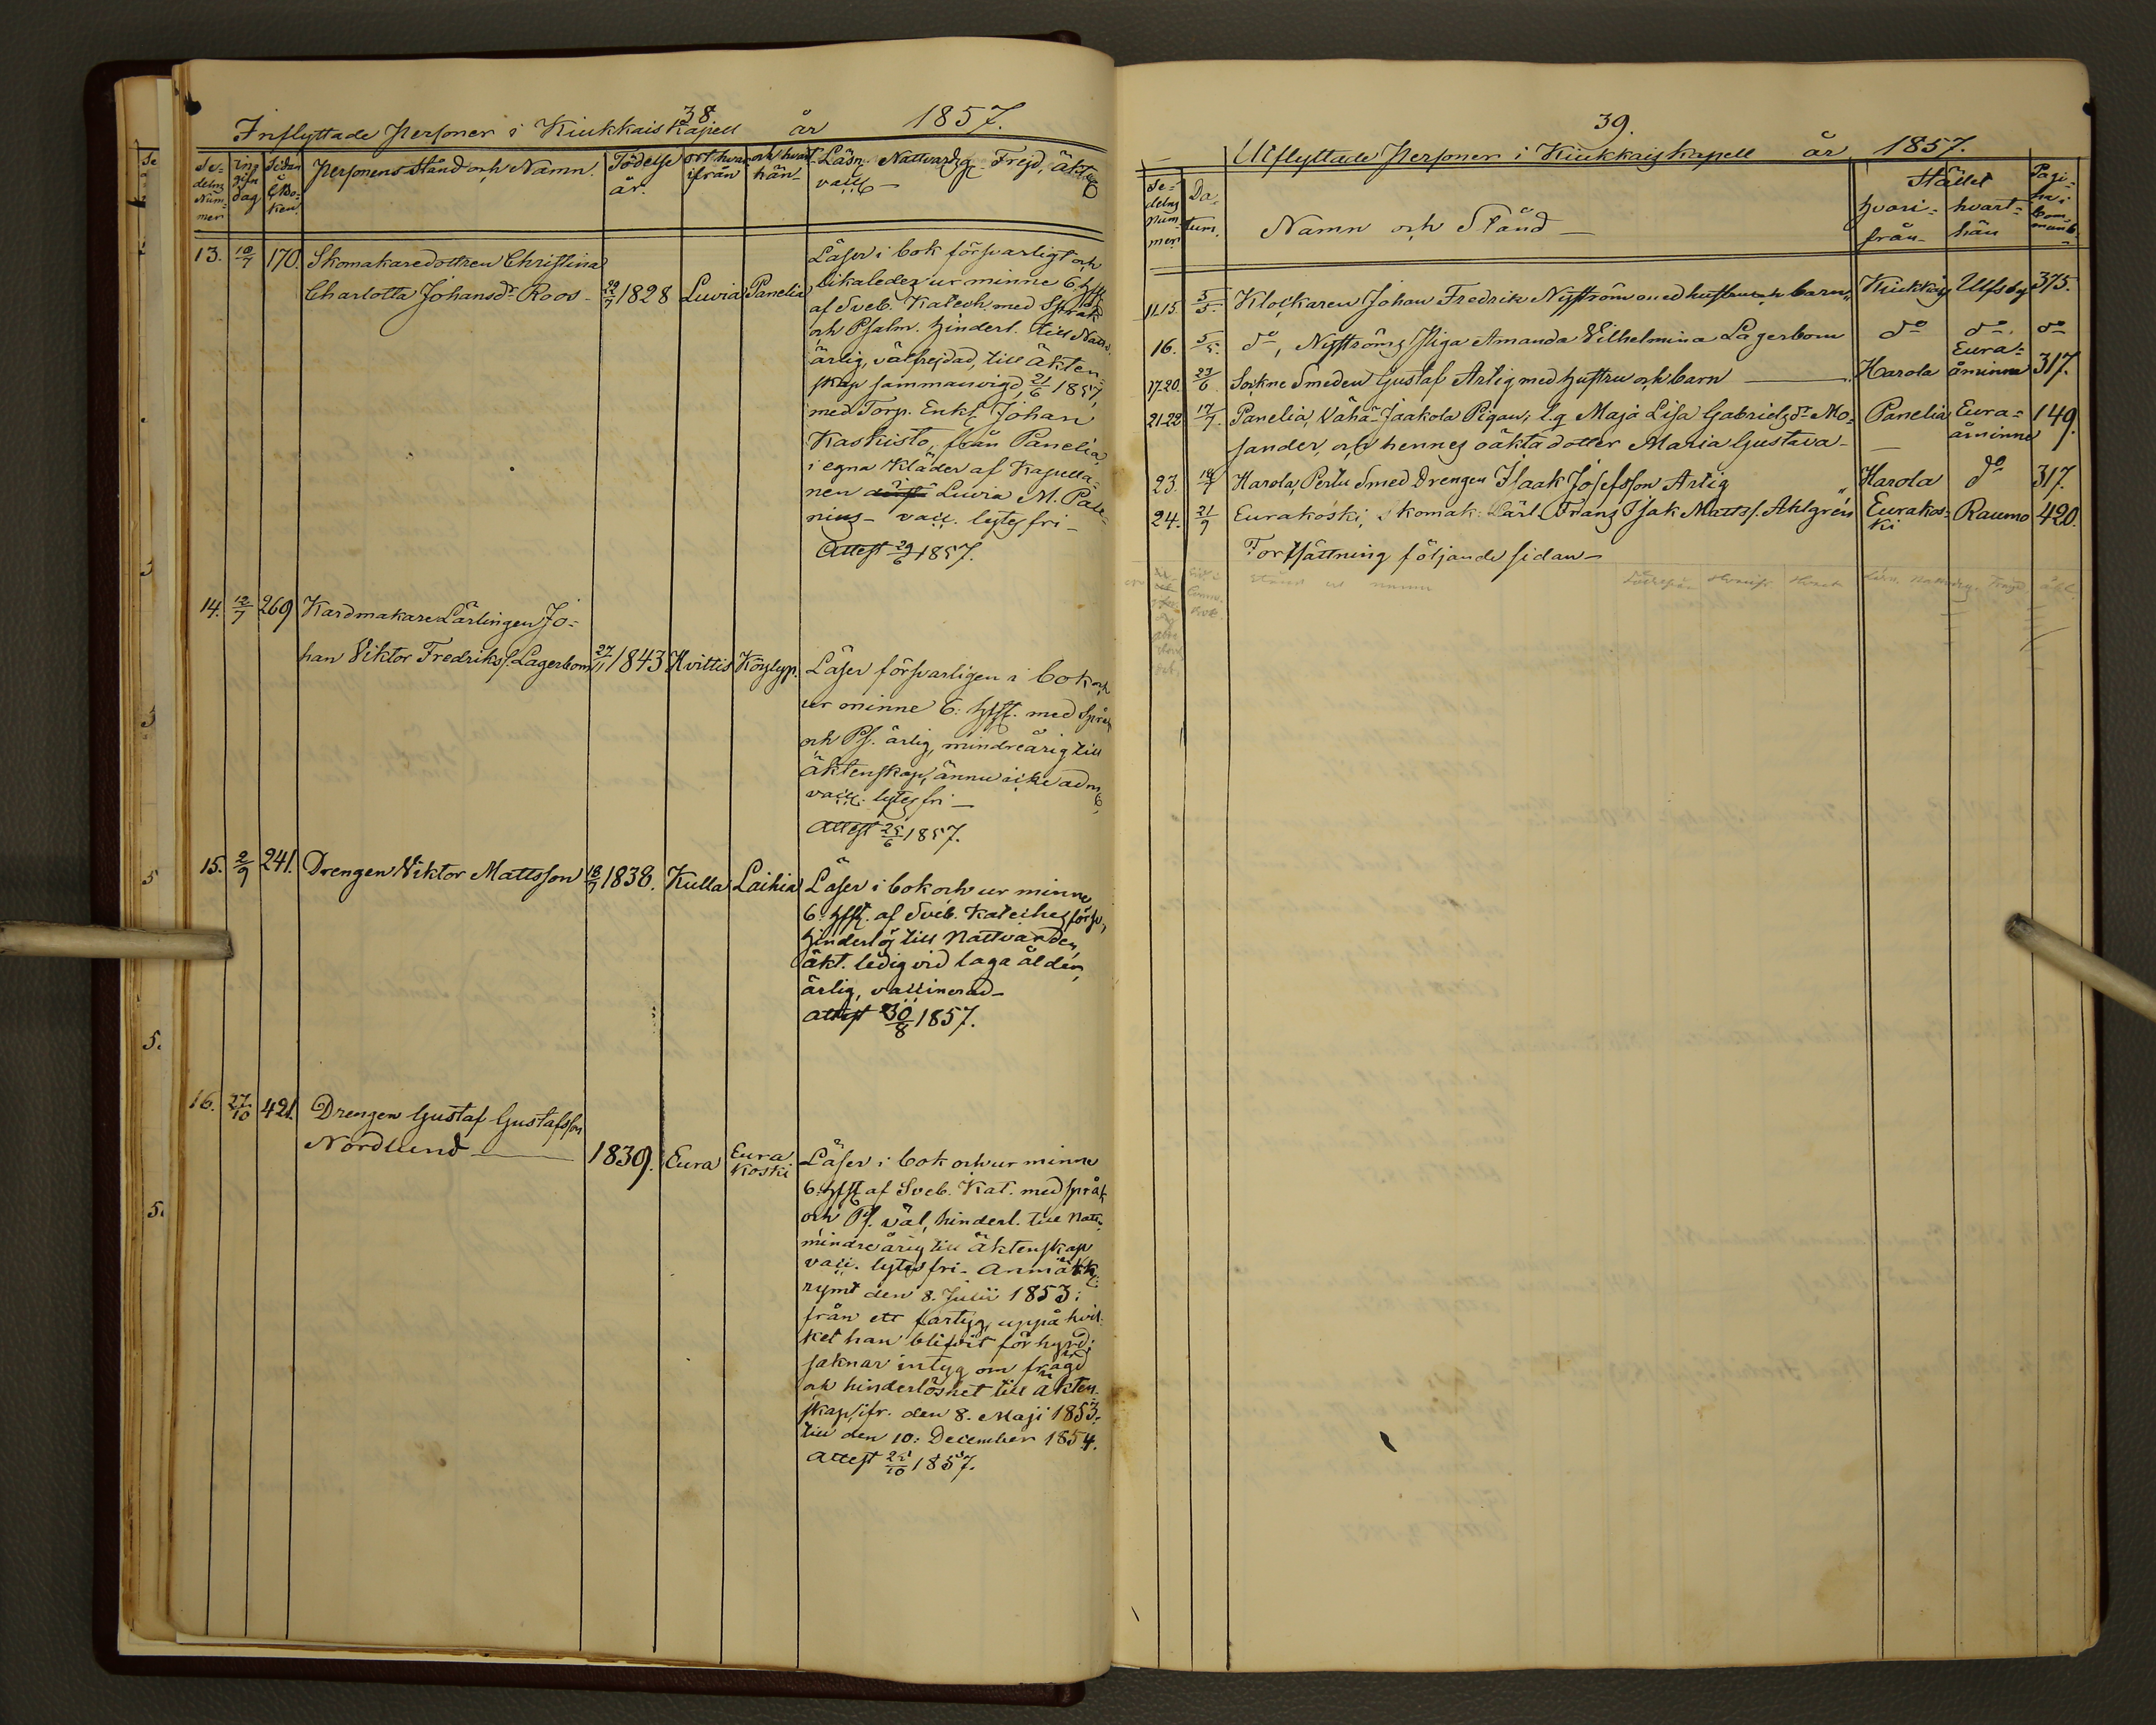 38.
Inflyttade Personer i Kiukkais Kapell år 1857.
Se-
delns
Num-
mer
ing
gifn
dag
Sidan
i
C Bo-
ken.
Personens Stånd och Namn.
Födelse
år.
ort hvar
ifrån
och hvart
hän
Läsn. Nattvardsg. Frejd, äkt.
vacc.
13. 10/7 170. Skomakaredottren Christina
Charlotta Johansdr Roos - 22/7 1828 Luvia Panelia
Läser i bok försvarligt och
likaledes ur minne 6. Hfst.
af Sveb. Katech. med Språk
och Psalm. Hinderl. till Nattv.
ärlig, välfrejdad, till äkten-
skap sammanvigd, 21/6 1857,
med Torp. Enkl. Johan
Kaskisto, från Panelia,
i egna kläder af Kapella-
nen i Luvia M. Pale-
nius - vacc. lytesfri -
Attest 29/6 1857.
14. 12/7 269 Kardmakare Lärlingen Jo-
han Viktor Fredrikss. Lagerbom 27/11 1843 Hvittis Köylyp.
Läser försvarligen i bok och
ur minne 6. Hfst. med Språk
och Ps. ärlig, mindreårig till
äktenskap, ännu icke adm.
vacc. lytesfri -
Attest 25/6 1857.
15. 2/9 241. Drengen Viktor Mattsson 18/7 1838. Kulla Laihia
Läser i bok och ur minne
6. Hfst. af Sveb. Kateches försv,
hinderlös till Nattvarden,
äkt. ledig vid laga ålder,
ärlig, vaccinerad -
Attest 30/8 1857.
16. 27/10 421. Drengen Gustaf Gustafsson
Nordlund - 1839. Eura Eura
koski
Läser i bok och ur minne
6. Hfst af Sveb. Kat. med språk
och Ps. väl, hinderl. till Nattv.
mindreårig till äktenskap
vacc. lytesfri. Anmärk.
rymt den 8. Julii 1853:
från ett fartyg, uppå hvil-
ket han blifvit förhyrd;
saknar intyg om frägd
och hinderlöshet till äkten-
skap, ifr. den 8. Maji 1853.
till den 10: December 1854.
Attest 25/10 1857.
39.
Utflyttade Personer i Kiukkais Kapell år 1857.
Se-
delns
Num-
mer
Da-
tum.
Namn och Stånd -
Stället
hvari-
från-
hvart-
hän
Pagi-
na i
Com-
munb.
11.15. 5/5. Klockaren Johan Fredrik Nyström med hustru och barn Kiukkais Ulfsby 375.
16. 5/5. do, Nyströms Piga Amanda Vilhelmina Lagerbom do do. do
17.20. 23/6. Sockne Smeden Gustaf Artig med Hustru och barn Harola Eura-
åminne 317.
21-22 17/7. Panelia, Vähä-Jaakola Pigan, l.g Maja Lisa Gabrielsdr Mo- Panelia Eura- 149.
sander, och hennes oäkta dotter Maria Gustava - åminne
23. 18/7 Harola, Perttu Smed Drengen Isaak Josefsson Artig Harola do 317.
24. 21/9 Eurakoski, skomak. Lärl. Frans Isak Matts s. Ahlgrén Eurakos-
ki Raumo 420.
Fortsättning följande sidan -